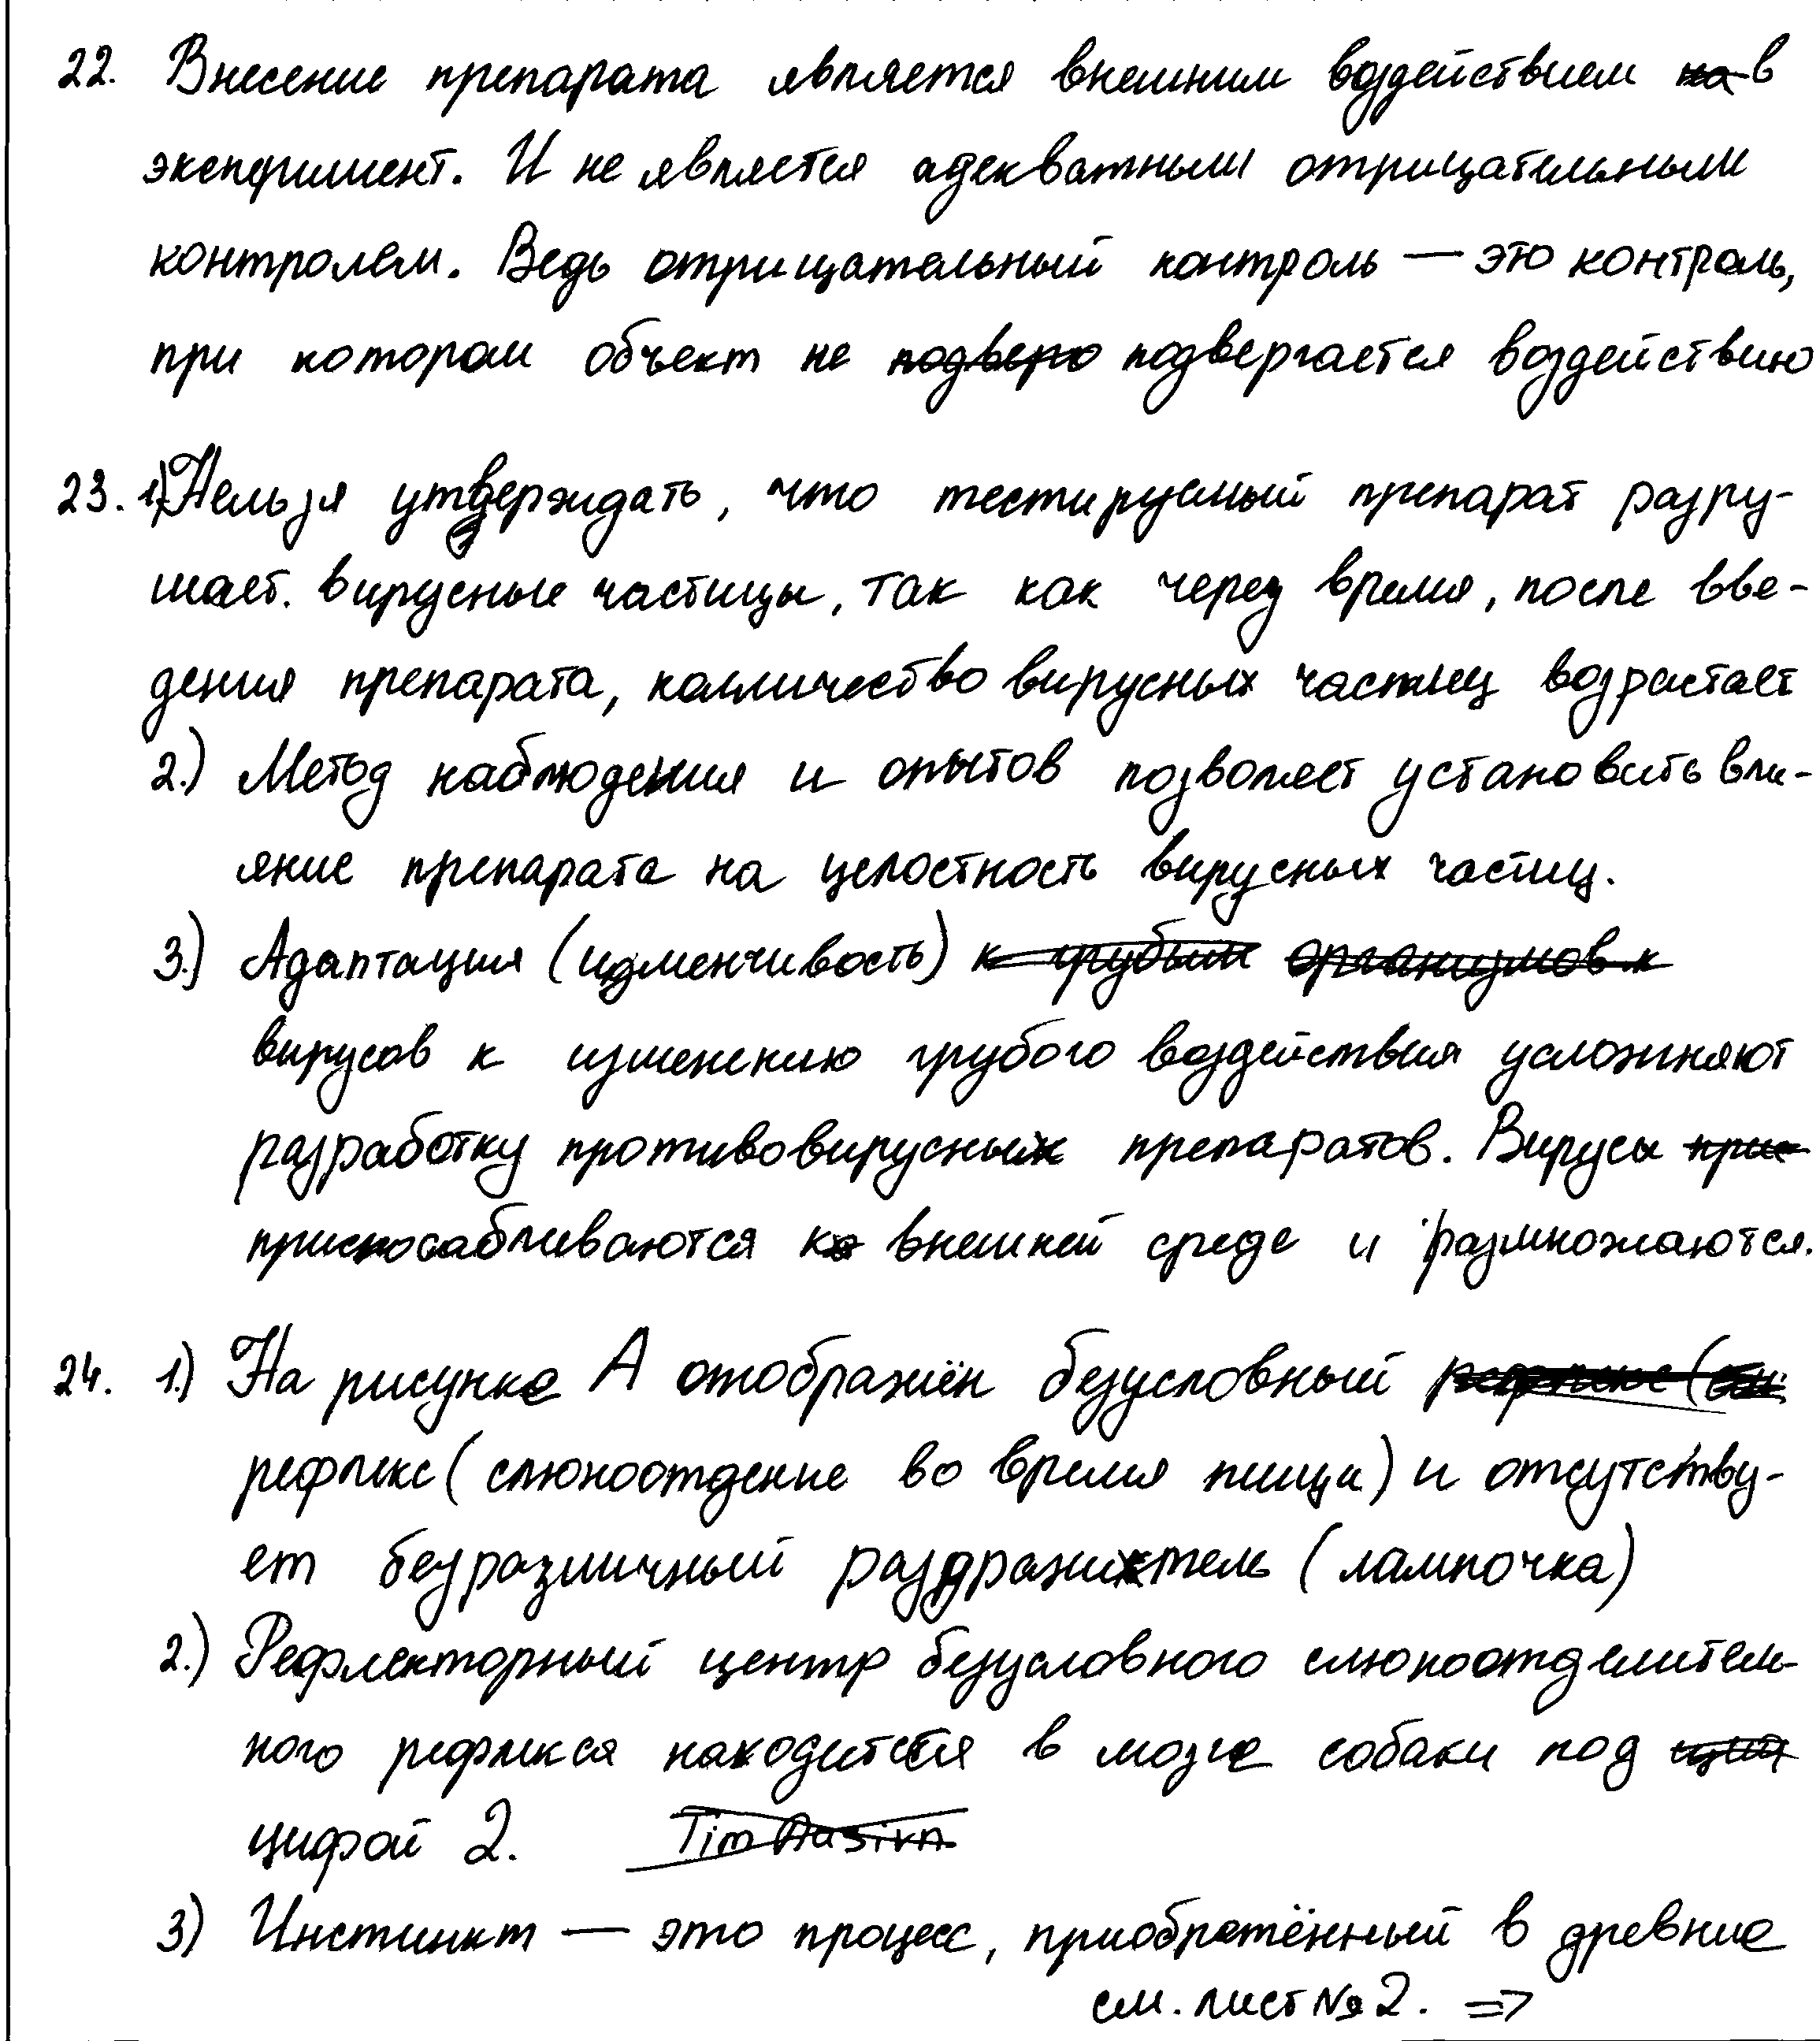 22. Внесение препарата является внешним воздействием на в
эксперимент. И не является адекватным отрицательным
контролем. Ведь отрицательный контроль — это контроль,
при котором объект не подверг подвергается воздействию
23. 1) Нельзя утверждать, что тестируемый препарат разру-
шает. вирусные частицы, так как через время, после вве-
дения препарата, колличество вирусных частиц возрастает
2.) Метод наблюдения и опытов позволяет установить вли-
яние препарата на целостность вирусных частиц.
3.) Адаптация (изменчивость) к грубым организмов к
вирусов к изменению грубого воздействия усложняют
разработку противовирусных препаратов. Вирусы при-
приспосабливаются к внешней среде и размножаются.
24. 1.) На рисунке А отображён безусловный рефлекс (
рефлекс (слюноотдение во время пищи) и отсутству-
ет безразличный раздражитель (лампочка)
2.) Рефлекторный центр безусловного слюноотделитель-
ного рефлекса находится в мозге собаки под
цифрой 2. Tim
3) Инстинкт — это процесс, приобретённый в древние
см. лист № 2. =>